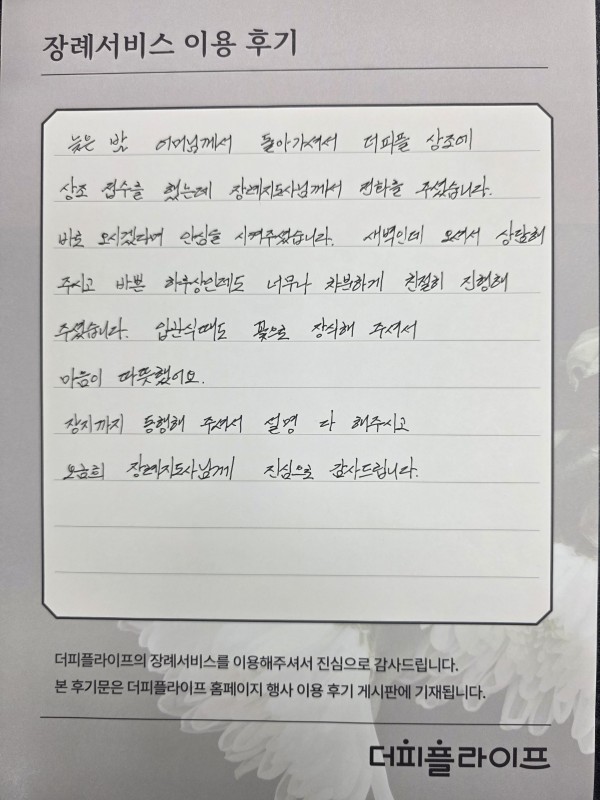 장례서비스 이용 후기
늦은 밤 어머님께서 돌아가셔서 더피플 상조에
상조 접수를 했는데 장례지도사님께서 전화를 주셨습니다.
바로 오시겠다며 안심을 시켜주셨습니다. 새벽인데 오셔서 상담해
주시고 바쁜 하루상인데도 너무나 차분하게 친절히 진행해
주셨습니다. 입관식때도 꽃으로 장식해 주셔서
마음이 따뜻했어요.
장지까지 동행해 주셔서 설명 다 해주시고
오금희 장례지도사님께 진심으로 감사드립니다.
더피플라이프의 장례서비스를 이용해주셔서 진심으로 감사드립니다.
본 후기문은 더피플라이프 홈페이지 행사 이용 후기 게시판에 기재됩니다.
더피플라이프